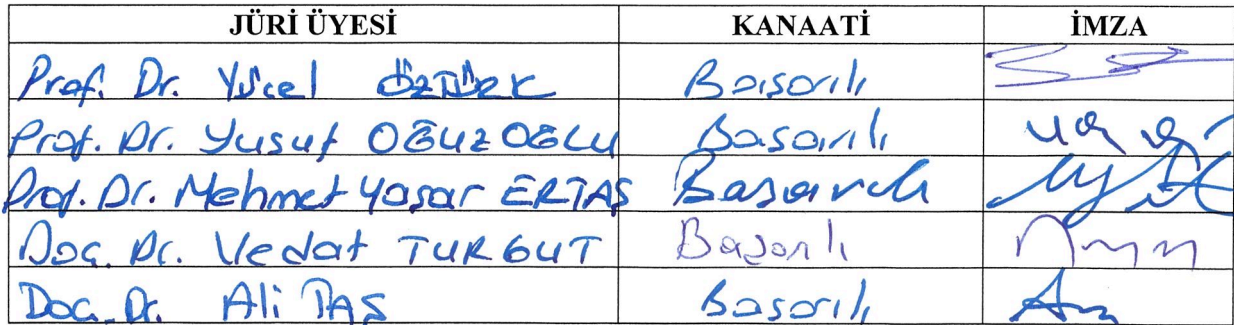 JÜRİ ÜYESİ KANAATİ İMZA
Prof. Dr. Yücel ÖZTÜRK Başarılı
Prof. Dr. Yusuf OĞUZOĞLU Başarılı
Prof. Dr. Mehmet Yaşar ERTAŞ Başarılı
Doç. Dr. Vedat TURGUT Başarılı
Doç. Dr. Ali TAŞ Başarılı